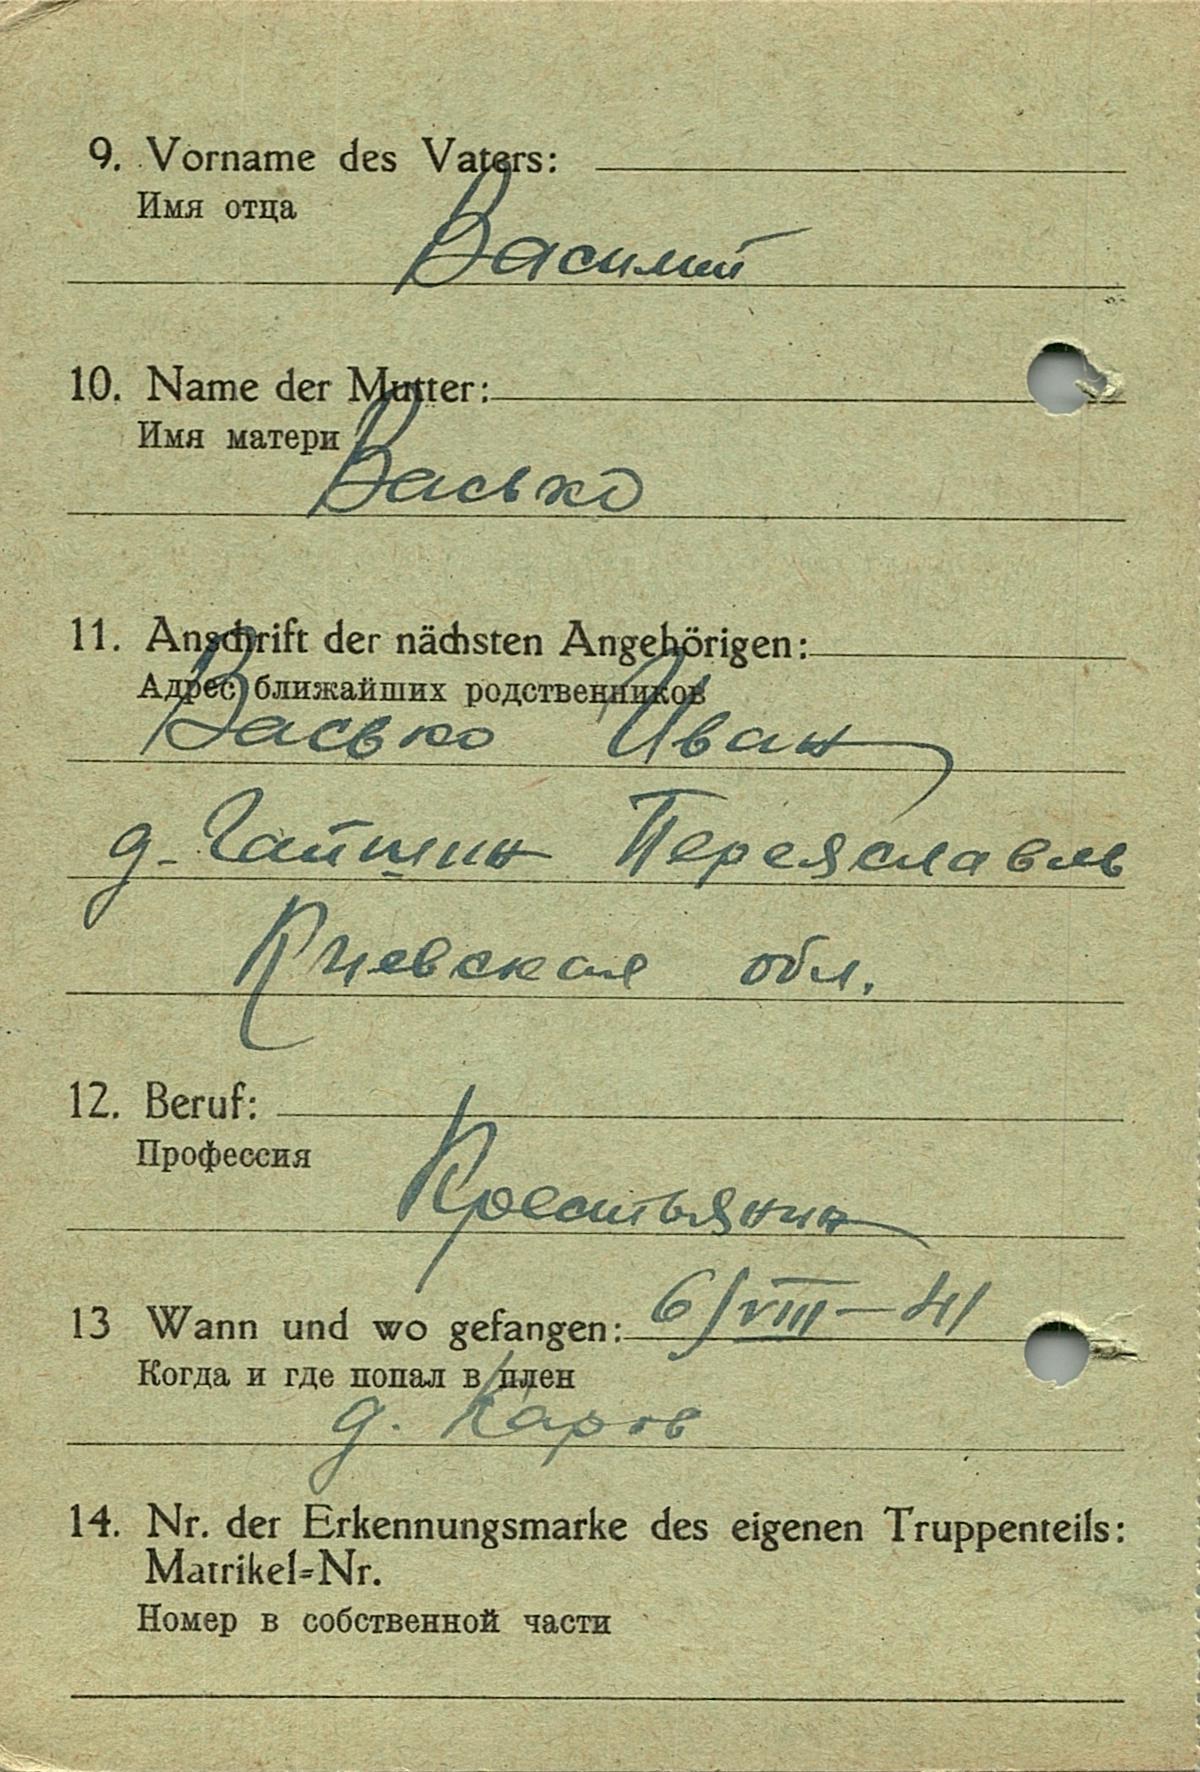 9. Vorname des Vaters:
Имя отца
Василий
10. Name der Mutter:
Имя матери
Васько
11. Anschrift der nächsten Angehörigen:
Адрес ближайших родственников
Васько Иван
д. Гайшин Переяславль
Киевская обл.
12. Beruf:
Профессия
Крестьянин
13 Wann und wo gefangen: 6/VIII-41
Когда и где попал в плен
д. Каров
14. Nr. der Erkennungsmarke des eigenen Truppenteils:
Matrikel=Nr.
Номер в собственной части